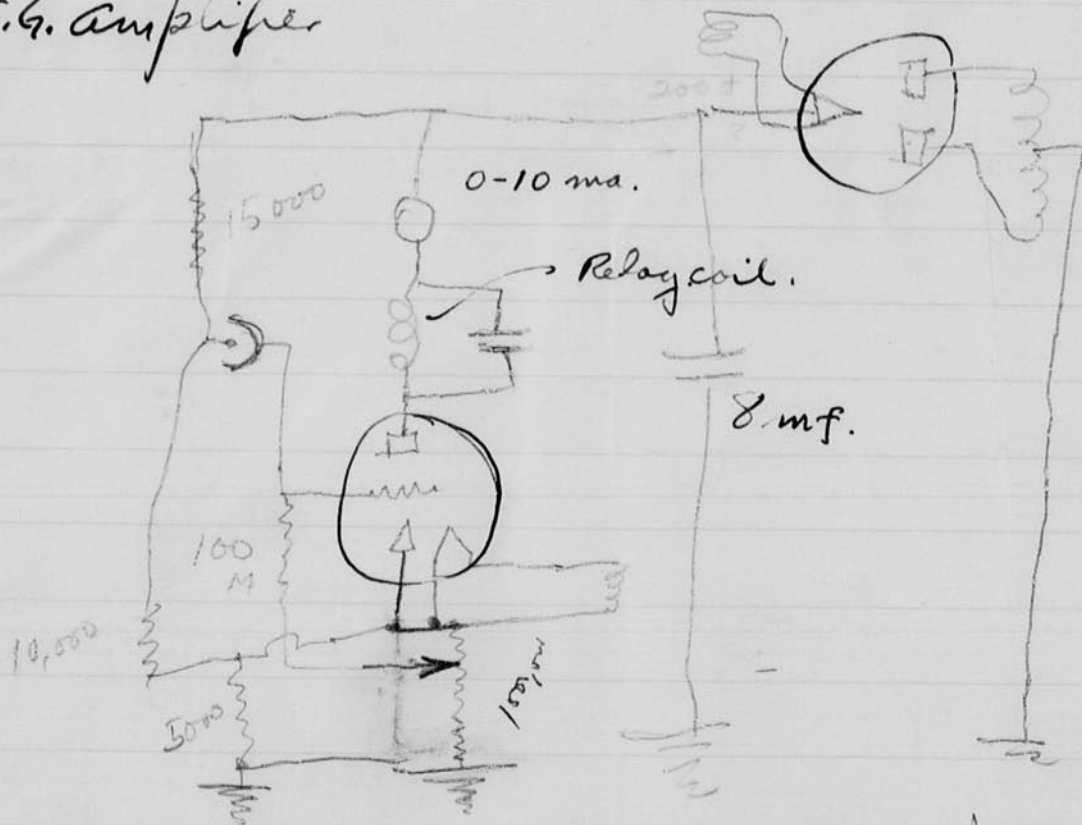 .G. amplifier
200
15000
0-10 ma.
Relay coil.
8 mf.
100
M
10,000
5000